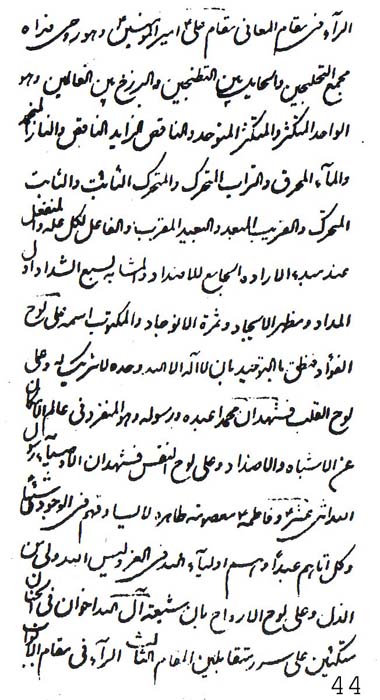 الرآء فی مقام المعانی مقام علی امیرالمؤمنین ع وهو روحی فداه
مجمع الخلیجین والحاید بین الطتنجین والبرزخ بین العالمین وهو
الواحد المتکثر والمتکثر المتوحد والناقص الزاید الناقص والنار المنجمد
والمآء المحرق والتراب المتحرک والمتحرک الثابت والثابت
المتحرک والقریب المبعد والبعید المقرب والفاعل لکل عله والمنفعل
عند مبدء الاراده الجامع للاضداد والمشابه لسبع الشداد اول
المداد ومظهر الایجاد وثمرة الانوجاد والمکتوب اسمه علی لوح
الفؤاد منطق بالتوحید بان لا اله الا الله وحده لا شریک له وعلی
لوح القلب فتشهد ان محمدا عبده ورسوله وهو المنفرد فی عالم الامکان
عن الاشباه والاضداد وعلی لوح النفس فتشهد ان الاوصیآء رسول
الله اثنی عشر وفاطمه ع معصومة طاهره لا یساوقهم فی الوجود شیئا
وکل اتاهم عبدا وهم اولیآء الله فی العز ولیس لله ولی من
الذل وعلی لوح الارواح بان شیعة آل الله اخوان فی الجنان
متکئین علی سرر متقابلین المقام الثالث الرآء فی مقام الابواب
44